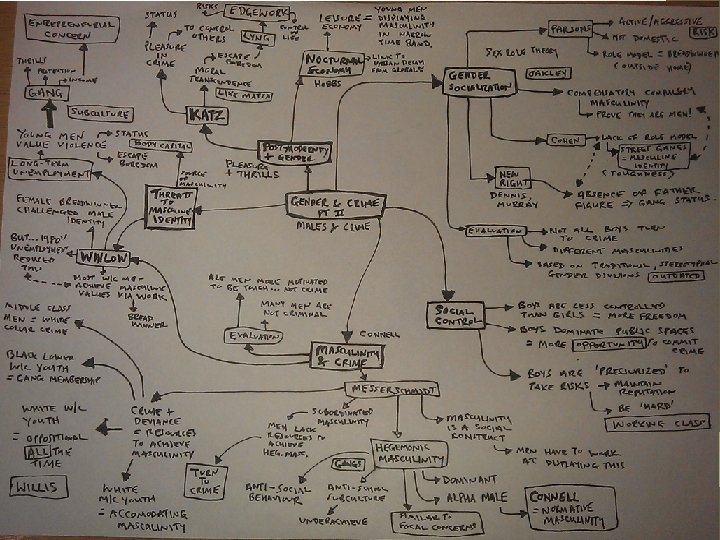 ENTREPRENEURIAL
CONCERN
THRILLS
RETENTION
INCOME
GANG
SUBCULTURE
YOUNG MEN
VALUE VIOLENCE
STATUS
ESCAPE
BOREDOM
BODY CAPITAL
LONG-TERM
UNEMPLOYMENT
FEMALE BREADWINNER
CHALLENGED MALE
IDENTITY
BUT... 1980s
UNEMPLOYMENT
REDUCED
THIS
WINLOW
MOST W/C MEN
ACHIEVE MASCULINE
VALUES VIA WORK
BREAD
WINNER
STATUS
PLEASURE
IN
CRIME
RISKS
EDGEWORK
TO CONTROL
OTHERS
LYNG
CONTROL
OF
LIFE
ESCAPE
BOREDOM
MORAL
TRANSCENDENCE
LIKE MATZA
KATZ
LEISURE =
ECONOMY
YOUNG MEN
= DISPLAYING
MASCULINITY
IN NARROW
TIME BAND.
NOCTURNAL
ECONOMY
HOBBS
LINK TO
URBAN DECAY
FROM GLOBALS
POSTMODERNITY
+ GENDER
PLEASURE
+ THRILLS
SOURCE
OF
MASCULINITY
THREAT
TO
MASCULINE
IDENTITY
GENDER & CRIME
PT II
MALES & CRIME
SEX ROLE THEORY
GENDER
SOCIALIZATION
PARSONS
ACTIVE/AGGRESSIVE
NOT DOMESTIC
RISK
ROLE MODEL = BREADWINNER
(OUTSIDE HOME)
OAKLEY
COMPENSATORY COMPULSORY
MASCULINITY
PROVE THEY ARE MEN!
COHEN
LACK OF ROLE MODEL
STREET GANGS
= MASCULINE
IDENTITY
(TOUGHNESS)
NEW
RIGHT
DENNIS,
MURRAY
ABSENCE OF FATHER
FIGURE => GANG STATUS.
EVALUATION
NOT ALL BOYS TURN
TO CRIME
DIFFERENT MASCULINITIES
BASED ON TRADITIONAL, STEREOTYPICAL
GENDER DIVISIONS
OUTDATED
SOCIAL
CONTROL
BOYS ARE LESS CONTROLLED
THAN GIRLS = MORE FREEDOM
BOYS DOMINATE PUBLIC SPACES
= MORE OPPORTUNITY TO COMMIT
CRIME
BOYS ARE 'PRESSURIZED' TO
TAKE RISKS → MAINTAIN
REPUTATION
BE 'HARD'
WORKING CLASS
ARE MEN MORE MOTIVATED
TO BE TOUGH ... NOT CRIME
MANY MEN ARE
NOT CRIMINAL
EVALUATION
CONNELL
MASCULINITY
& CRIME
MESSERSCHMIDT
MIDDLE CLASS
MEN = WHITE
COLLAR CRIME
BLACK LOWER
W/C YOUTH
= GANG MEMBERSHIP
WHITE W/C
YOUTH
= OPPOSITIONAL
ALL THE
TIME
WILLIS
CRIME +
DEVIANCE
= RESOURCES
TO ACHIEVE
MASCULINITY
WHITE
M/C YOUTH
= ACCOMODATING
MASCULINITY
SUBORDINATED
MASCULINITY
MEN LACK
RESOURCES TO
ACHIEVE
HEG. MAS.
TURN
TO
CRIME
MASCULINITY
IS A SOCIAL
CONSTRUCT
MEN HAVE TO WORK
AT DISPLAYING THIS
HEGEMONIC
MASCULINITY
GANGS
ANTI-SOCIAL
BEHAVIOUR
ANTI-SCHOOL
SUBCULTURE
UNDERACHIEVE
DOMINANT
ALPHA MALE
SIMILAR TO
FOCAL CONCERNS
CONNELL
= NORMATIVE
MASCULINITY